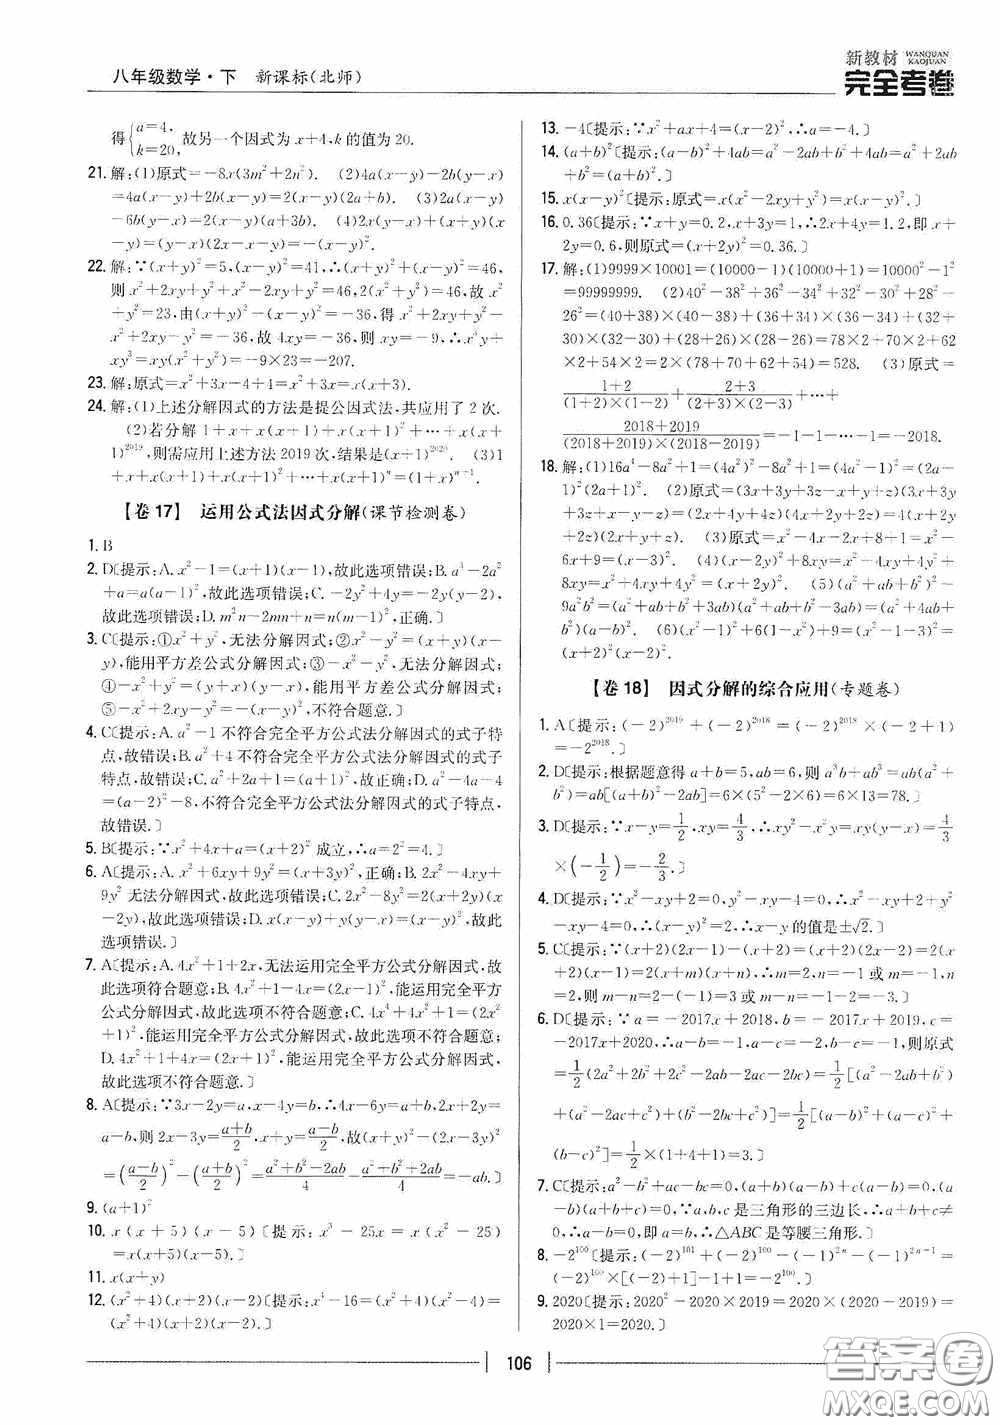 八年级数学·下 新课标(北师)
新教材 WANQUAN KAOJUAN
完全考卷
得{a=4, k=20, 故另一个因式为 x+4,k 的值为 20.
21. 解:(1)原式=-8x(3m²+2n²). (2)4a(x-y)-2b(y-x)
=4a(x-y)+2b(x-y)=2(x-y)(2a+b). (3)2a(x-y)
-6b(y-x)=2(x-y)(a+3b). (4)2x(y-x)+(x+y)(x
-y)=(y-x)(2x-x-y)=-(x-y)².
22. 解:∵(x+y)²=5,(x-y)²=41,∴(x+y)²+(x-y)²=46,
则 x²+2xy+y²+x²-2xy+y²=46,2(x²+y²)=46,故 x²
+y²=23,由(x+y)²-(x-y)²=-36,得 x²+2xy+y²-
x²+2xy-y²=-36,故 4xy=-36,则 xy=-9,∴x³y+
xy³=xy(x²+y²)=-9×23=-207.
23. 解:原式=x²+3x-4+4=x²+3x=x(x+3).
24. 解:(1)上述分解因式的方法是提公因式法,共应用了 2 次.
(2)若分解 1+x+x(x+1)+x(x+1)²+…+x(x+
1)²⁰¹⁹,则需应用上述方法 2019 次,结果是(x+1)²⁰²⁰. (3)1
+x+x(x+1)+x(x+1)²+…+x(x+1)ⁿ=(1+x)ⁿ⁺¹.
【卷 17】 运用公式法因式分解(课节检测卷)
1. B
2. D〔提示:A. x²-1=(x+1)(x-1),故此选项错误;B. a³-2a²
+a=a(a-1)²,故此选项错误;C. -2y²+4y=-2y(y-2),
故此选项错误;D. m²n-2mn+n=n(m-1)²,正确.〕
3. C〔提示:①x²+y²,无法分解因式;②x²-y²=(x+y)(x-
y),能用平方差公式分解因式;③-x²-y²,无法分解因式;
④-x²+y²=(y+x)(y-x),能用平方差公式分解因式;
⑤-x²+2xy-y²=-(x-y)²,不符合题意.〕
4. C〔提示:A. a²-1 不符合完全平方公式法分解因式的式子特
点,故错误;B. a²+4 不符合完全平方公式法分解因式的式子
特点,故错误;C. a²+2a+1=(a+1)²,故正确;D. a²-4a-4
=(a-2)²-8,不符合完全平方公式法分解因式的式子特点,
故错误.〕
5. B〔提示:∵x²+4x+a=(x+2)² 成立,∴a=2²=4.〕
6. A〔提示:A. x²+6xy+9y²=(x+3y)²,正确;B. 2x²-4xy+
9y² 无法分解因式,故此选项错误;C. 2x²-8y²=2(x+2y)
(x-2y),故此选项错误;D. x(x-y)+y(x-y)=(x-y)(x+y),故此
选项错误.〕
7. A〔提示:A. 4x²+1+2x,无法运用完全平方公式分解因式,故
此选项符合题意;B. 4x²+1-4x=(2x-1)²,能运用完全平方
公式分解因式,故此选项不符合题意;C. 4x⁴+4x²+1=(2x²
+1)²,能运用完全平方公式分解因式,故此选项不符合题意;
D. 4x²+1+4x=(2x+1)²,能运用完全平方公式分解因式,
故此选项不符合题意.〕
8. A〔提示:∵3x-2y=a,x-4y=b,∴4x-6y=a+b,2x+2y=
a-b,则 2x-3y=(a+b)/2,x+y=(a-b)/2,故(x+y)²-(2x-3y)²
=((a-b)/2)²-((a+b)/2)²=(a²+b²-2ab)/4-(a²+b²+2ab)/4=-ab.〕
9. (a+1)²
10. x(x+5)(x-5)〔提示:x³-25x=x(x²-25)
=x(x+5)(x-5).〕
11. x(x+y)
12. (x²+4)(x+2)(x-2)〔提示:x⁴-16=(x²+4)(x²-4)=
(x²+4)(x+2)(x-2).〕
13. -4〔提示:∵x²+ax+4=(x-2)²,∴a=-4.〕
14. (a+b)²〔提示:(a-b)²+4ab=a²-2ab+b²+4ab=a²+2ab
+b²=(a+b)².〕
15. x(x-y)²〔提示:原式=x(x²-2xy+y²)=x(x-y)².〕
16. 0.36〔提示:∵x+y=0.2,x+3y=1,∴2x+4y=1.2,即 x+
2y=0.6,则原式=(x+2y)²=0.36.〕
17. 解:(1)9999×10001=(10000-1)(10000+1)=10000²-1²
=99999999. (2)40²-38²+36²-34²+32²-30²+28²-
26²=(40+38)×(40-38)+(36+34)×(36-34)+(32+
30)×(32-30)+(28+26)×(28-26)=78×2+70×2+
62×2+54×2=2×(78+70+62+54)=528. (3)原式=
(1+2)/((1+2)×(1-2))+(2+3)/((2+3)×(2-3))+…+
(2018+2019)/((2018+2019)×(2018-2019))=-1-1-…-1=-2018.
18. 解:(1)16a⁴-8a²+1=(4a²-1)²=(2a+1)²(2a-
1)². (2)原式=(2x+3y+3z-x+y+z)(2x+3y
+3z+x-y-z)=(x+4y+4z)(3x+2y+
2z). (3)原式=x²-4x-2x+8+1=x²-
6x+9=(x-3)². (4)(x-2y)²+8xy=x²-4xy+4y²+
8xy=x²+4xy+4y²=(x+2y)². (5)(a²+ab+b²)²-
9a²b²=(a²+ab+b²+3ab)(a²+ab+b²-3ab)=(a²+4ab+
b²)(a-b)². (6)(x²-1)²+6(1-x²)+9=(x²-1-3)²=
(x+2)²(x-2)².
【卷 18】 因式分解的综合应用(专题卷)
1. A〔提示:(-2)²⁰¹⁹+(-2)²⁰¹⁸=(-2)²⁰¹⁸×(-2+1)
=-2²⁰¹⁸.〕
2. D〔提示:根据题意得 a+b=5,ab=6,则 a³b+ab³=ab(a²+
b²)=ab[(a+b)²-2ab]=6×(5²-2×6)=6×13=78.〕
3. D〔提示:∵x-y=1/2,xy=4/3,∴xy²-x²y=xy(y-x)=4/3
×(-1/2)=-2/3.〕
4. D〔提示:∵x²-xy+2=0,y²-xy-4=0,∴x²-xy+2+y²
-xy-4=0,∴(x-y)²=2,∴x-y 的值是±√2.〕
5. C〔提示:∵(x+2)(2x-1)-(x+2)=(x+2)(2x-2)=2(x
+2)(x-1)=2(x+m)(x+n),∴m=2,n=-1 或 m=-1,
n=2,则 m-n=2-(-1)=3 或 m-n=-1-2=-3.〕
6. D〔提示:∵a=-2017x+2018,b=-2017x+2019,c=
-2017x+2020,∴a-b=-1,a-c=-2,b-c=-1,则原式
=1/2(2a²+2b²+2c²-2ab-2ac-2bc)=1/2[(a²-2ab+b²)
+(a²-2ac+c²)+(b²-2bc+c²)]=1/2[(a-b)²+(a-c)²+
(b-c)²]=1/2×(1+4+1)=3.〕
7. C〔提示:a²-b²+ac-bc=0,(a+b)(a-b)+c(a-b)=0,
(a-b)(a+b+c)=0,∵a,b,c 是三角形的三边长,∴a+b+c≠
0,∴a-b=0,即 a=b,∴△ABC 是等腰三角形.〕
8. -2¹⁰⁰〔提示:(-2)¹⁰¹+(-2)¹⁰⁰=
(-2)¹⁰⁰×[(-2)+1]=-1×(-2)¹⁰⁰=-2¹⁰⁰.〕
9. 2020〔提示:2020²-2020×2019=2020×(2020-2019)=
2020×1=2020.〕
106
答案圈
MXQE.COM